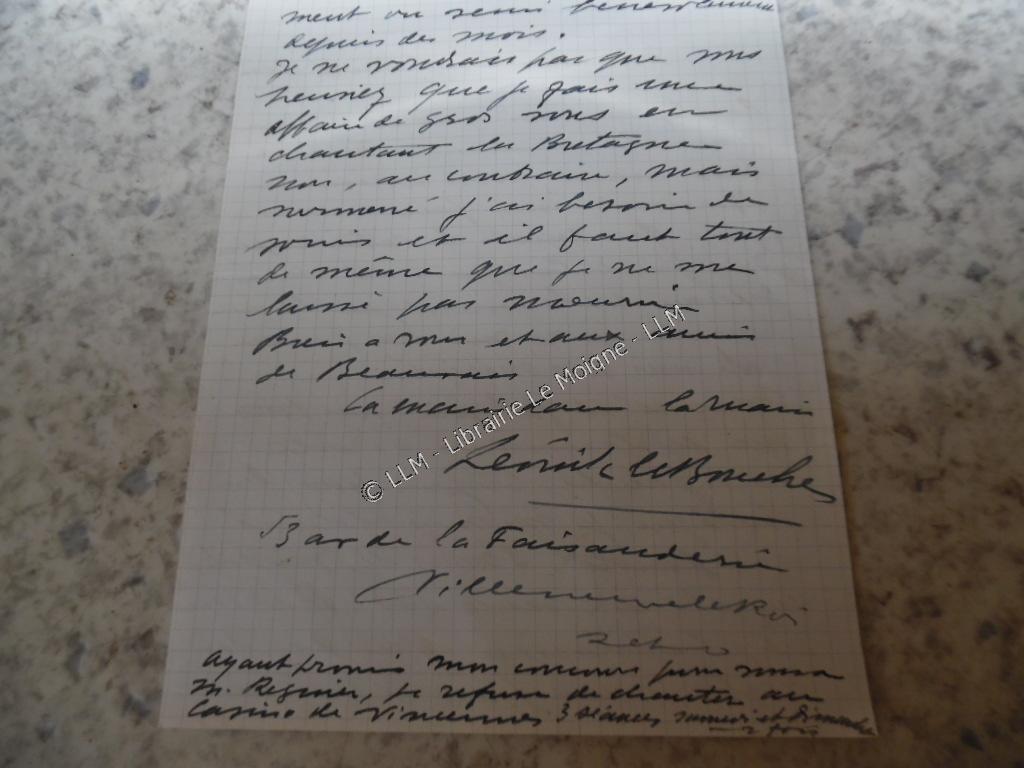 depuis des mois.
Je ne voudrais pas que vous
pensiez que je fais une
affaire de gros sous en
chantant la Bretagne
non, au contraire, mais
surmené j'ai besoin de
soins et il faut tout
de même que je ne me
laisse pas mourir
à vous et aux amis
de Beauvais
la main
© LLM - Librairie Le Moigne - LLM
53 av de la Faisanderie
Villeneuve le Roi
S et O
ayant promis mon concours pour
M. Regnier, je refuse de chanter au
Casino de Vincennes 3 séances samedi et Dimanche
2 fois